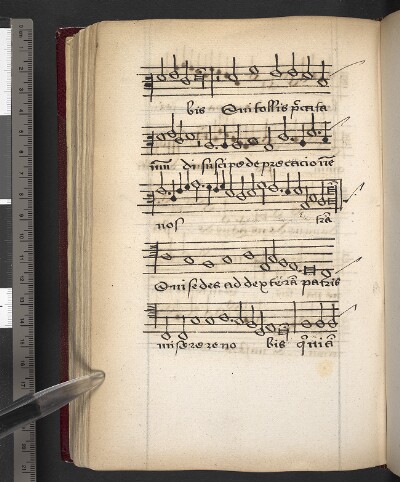 bis Qui tollis pccata
mu di suscipe deprecacione
nos tra
Qui sedes ad dexteram patris
miserere no bis qm